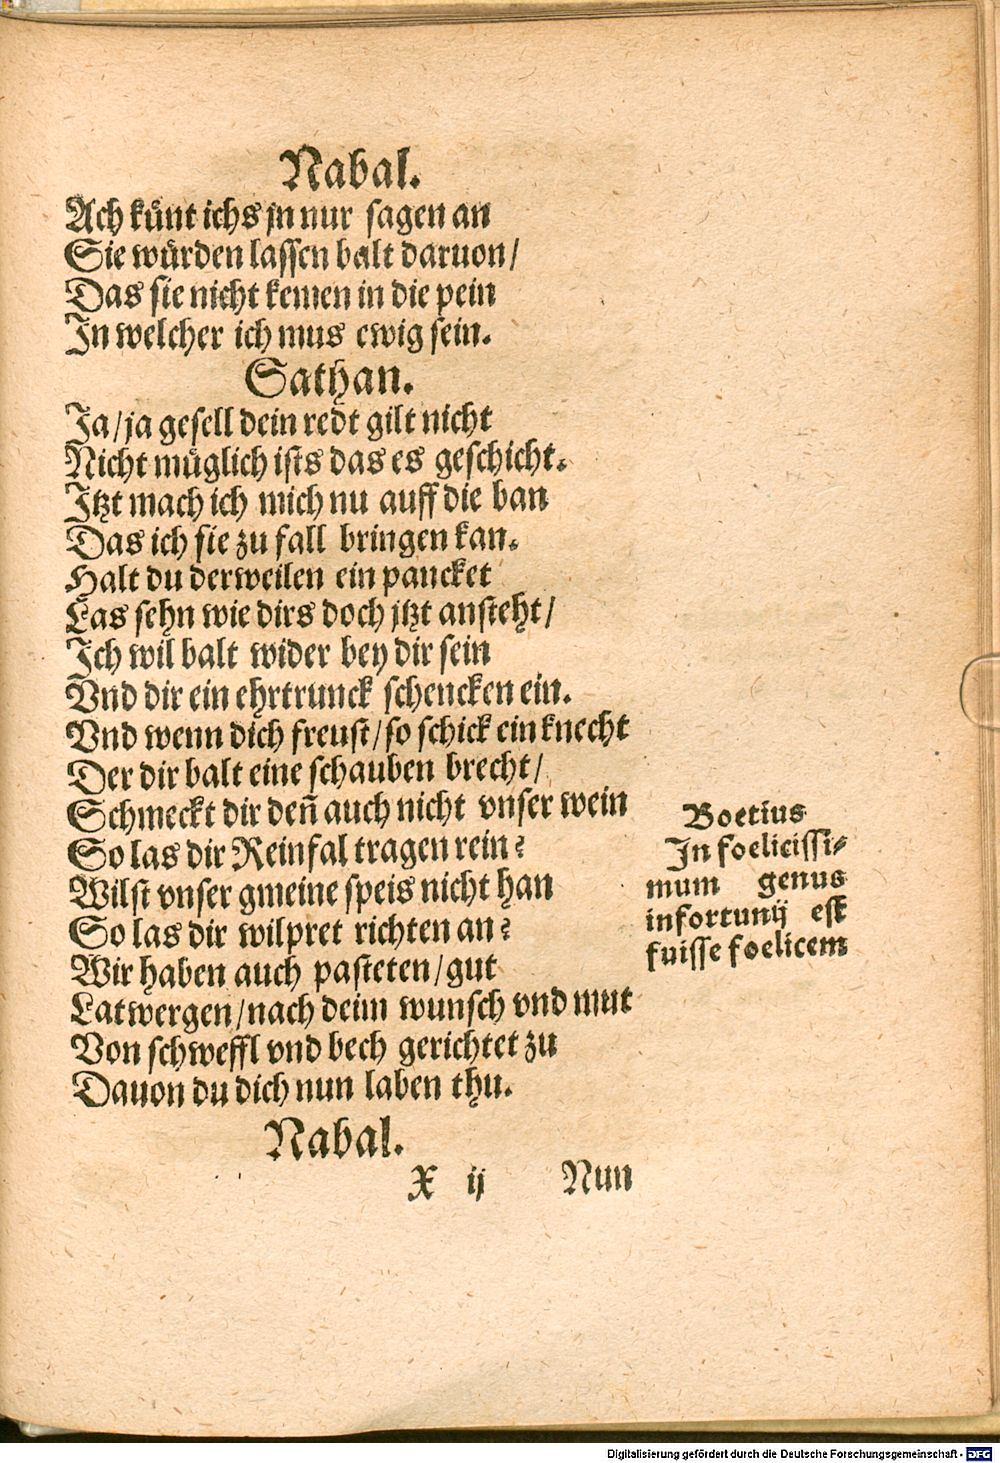 Nabal.
Ach künt ichs jn nur sagen an
Sie würden lassen balt daruon/
Das sie nicht kemen in die pein
In welcher ich mus ewig sein.
Sathan.
Ja/ja gesell dein redt gilt nicht
Nicht müglich ists das es geschicht.
Itzt mach ich mich nu auff die ban
Das ich sie zu fall bringen kan.
Halt du derweilen ein pancket
Las sehn wie dirs doch jtzt ansteht/
Ich wil balt wider bey dir sein
Vnd dir ein ehrtrunck schencken ein.
Vnd wenn dich freust/so schick ein knecht
Der dir balt eine schauben brecht/
Schmeckt dir deñ auch nicht vnser wein
So las dir Reinfal tragen rein?
Wilst vnser gmeine speis nicht han
So las dir wilpret richten an?
Wir haben auch pasteten/gut
Latwergen/nach deim wunsch vnd mut
Von schweffl vnd bech gerichtet zu
Dauon du dich nun laben thu.
Boetius
In foelicissi-
mum genus
infortunij est
fuisse foelicem
Nabal.
X ij Nun
Digitalisierung gefördert durch die Deutsche Forschungsgemeinschaft - DFG